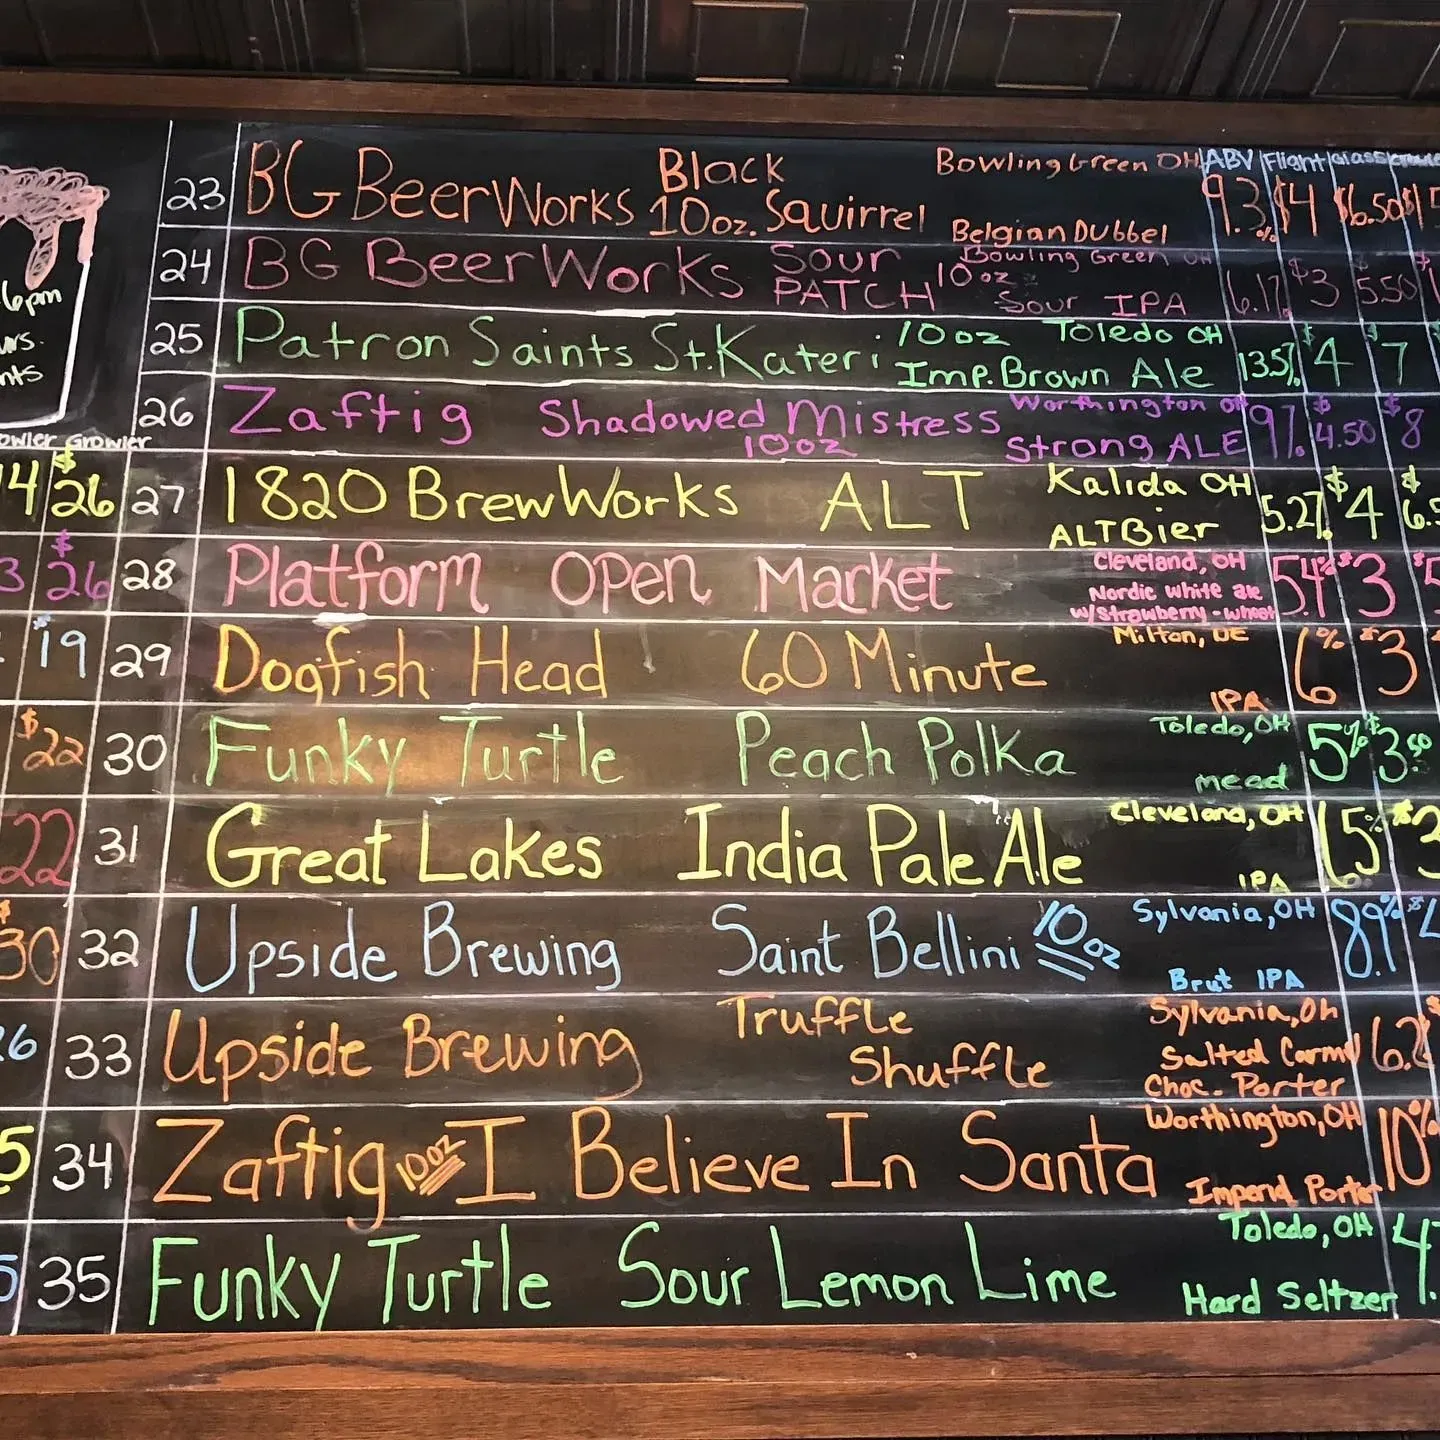 ABV Flight Glass
23 BG BeerWorks Black Squirrel 10oz. Bowling Green OH Belgian Dubbel 9.3% $4 $6.50
24 BG BeerWorks Sour PATCH 10oz Bowling Green OH Sour IPA 6.1% $3 $5.50
6pm
25 Patron Saints St. Kateri 10oz Toledo OH Imp. Brown Ale 13.5% $4 $7
26 Zaftig Shadowed Mistress 10oz Worthington OH Strong ALE 9% $4.50 $8
Growler
$26 27 1820 BrewWorks ALT Kalida OH ALTBier 5.2% $4
$26 28 Platform Open Market Cleveland, OH Nordic white ale w/strawberry-wheat 5.4% $3
$19 29 Dogfish Head 60 Minute Milton, DE IPA 6% $3
$22 30 Funky Turtle Peach Polka Toledo, OH mead 5% $3.50
22 31 Great Lakes India Pale Ale Cleveland, OH IPA 6.5% $3
30 32 Upside Brewing Saint Bellini 10oz Sylvania, OH Brut IPA 8.9%
33 Upside Brewing Truffle Shuffle Sylvania, Oh Salted Carml Choc. Porter
34 Zaftig 10oz I Believe In Santa Worthington, OH Imperial Porter 10%
35 Funky Turtle Sour Lemon Lime Toledo, OH Hard Seltzer